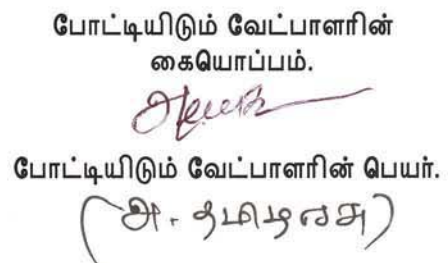 போட்டியிடும் வேட்பாளரின்
கையொப்பம்.
போட்டியிடும் வேட்பாளரின் பெயர்.
(அ. தமிழரசு)